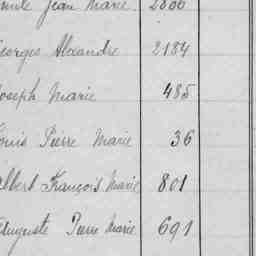 Jean Marie 2806
Georges Alexandre 2184
Joseph Marie 485
Louis Pierre Marie 36
Albert François Marie 801
Auguste Pierre Marie 691